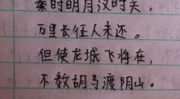 秦时明月汉时关，
万里长征人未还。
但使龙城飞将在，
不教胡马渡阴山。